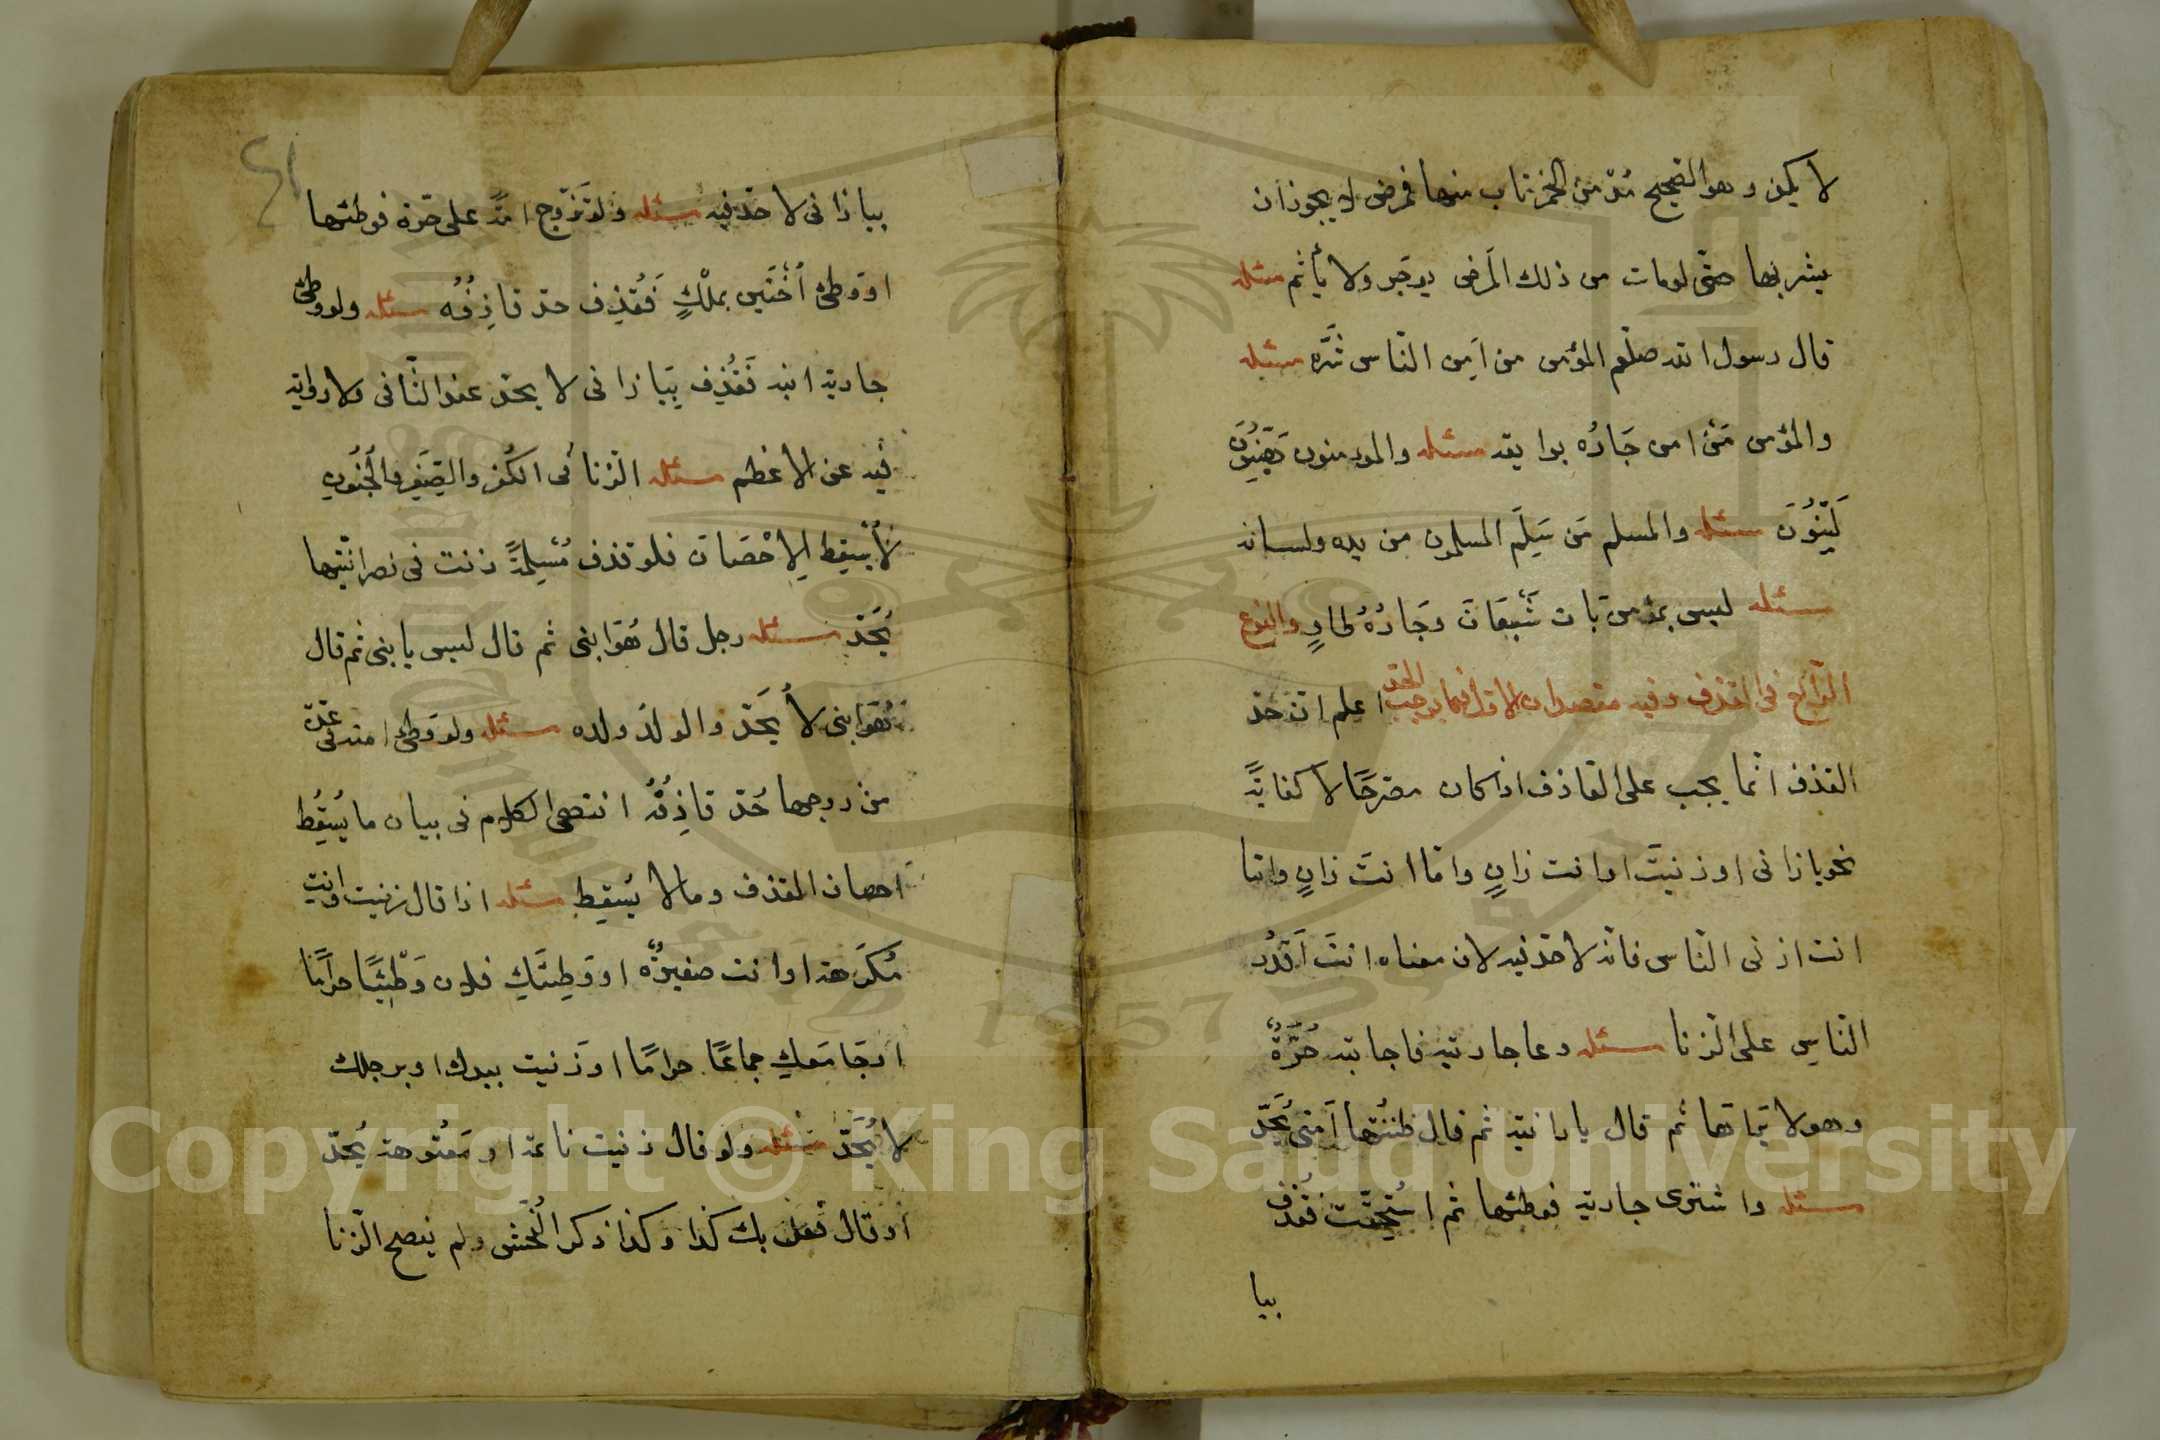 لا يكفر وهو الصحيح مدمن الخمر تاب منها فمرض لا يجوز ان
يشربها حتّى لو مات من ذلك المَرض يوجر ولا يأثم مسئله
قال رسول الله صلعم المؤمن من اَمِن الناس شَرَّه مسئله
والمؤمن مَنْ امن جَارُه بوايقه مسئله والمومنون هَيِّنُونَ
لَيِّنُوُنَ مسئله والمسلم مَن سَلِمَ المسلمون من يده ولسانه
مسئله ليس بمؤمن بَات شَبْعَانَ وجَارُهُ طاوٍ والنوع
الرّابع فى القذف وفيه مقصدان الاوّل فيما يوجب الحدّ اعلم انّ حدّ
القذف انّما يجب على القاذف اذا كان مصرحًا لا كنايةً
نحو يا زانى او زنيتَ او انت زانٍ وامّا انتَ زانٍ وامّا
انت ازنى النّاس فانّه لا حدّ فيه لان معناه انتَ اَقدرُ
النّاسِ على الّزنا مسئله دعا جاريته فاجابته حُرَّةٌ
وهو لا يَراهَا ثم قال يا زانية ثم قال ظننتُها اَمَتى يُحَدّ
مسئله واشترى جارية فوطئها ثم استُحِقّت فقُذف
بيا
بيا زانى لا حدّ فيه مسئله ولو تزوج امةً على حرّة فوطئها
او وطئ اُختَين بملْكٍ فَقُذِف حدّ قاذِفُه مسئله ولو وطئ
جارية ابنه فقُذِف بِيَا زانى لا يحدّ عند الثّانى ولا رواية
فيه عن الاعظم مسئله الزّنا فى الكُفر والصِّغَر والجُنُونِ
لا يُسقِط الِاحْصَان فلو قذف مُسْلِمةً زنت فى نصرانيّتها
يُحَدّ مسئله رجل قال هُوَ ابنى ثم قال ليس بابنى ثم قال
هُوَ ابنى لا يُحَدّ والولدُ ولده مسئله ولو وَطئ امته فى عدّة
من زوجها حُدّ قاذِفُهُ انتهى الكلام فى بيان ما يُسقِطُ
احصان القذف وما لا يُسقِط مسئله اذا قال زنيت وانت
مُكرَهة او انت صغيرةٌ او وَطِئَكِ فلان وَطْئًا حرَامًا
او جَامَعَكِ جماعًا حرامًا او زنيت بيدك او برجلك
لا يُحَدّ مسئله ولو قال زنيت نائمة او مَعْتوهة يُحدّ
او قال فُعل بك كذا وكذا ذكر الفُحش ولم يفصح الّزنا